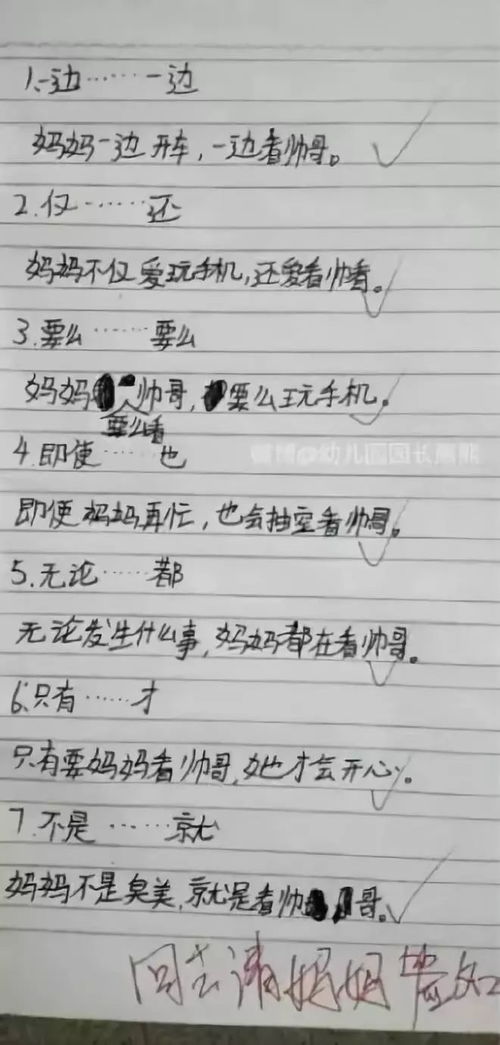 1.一边……一边
妈妈一边开车,一边看帅哥。
2.仅……还
妈妈不仅爱玩手机,还爱看帅看。
3.要么……要么
妈妈要么看帅哥,要么玩手机。
4.即使……也
即便妈妈再忙,也会抽空看帅哥。
5.无论……都
无论发生什么事,妈妈都在看帅哥。
6.只有……才
只有要妈妈看帅哥,她才会开心。
7.不是……就
妈妈不是臭美,就是看帅哥。
回去请妈妈
@幼儿园园长熊熊